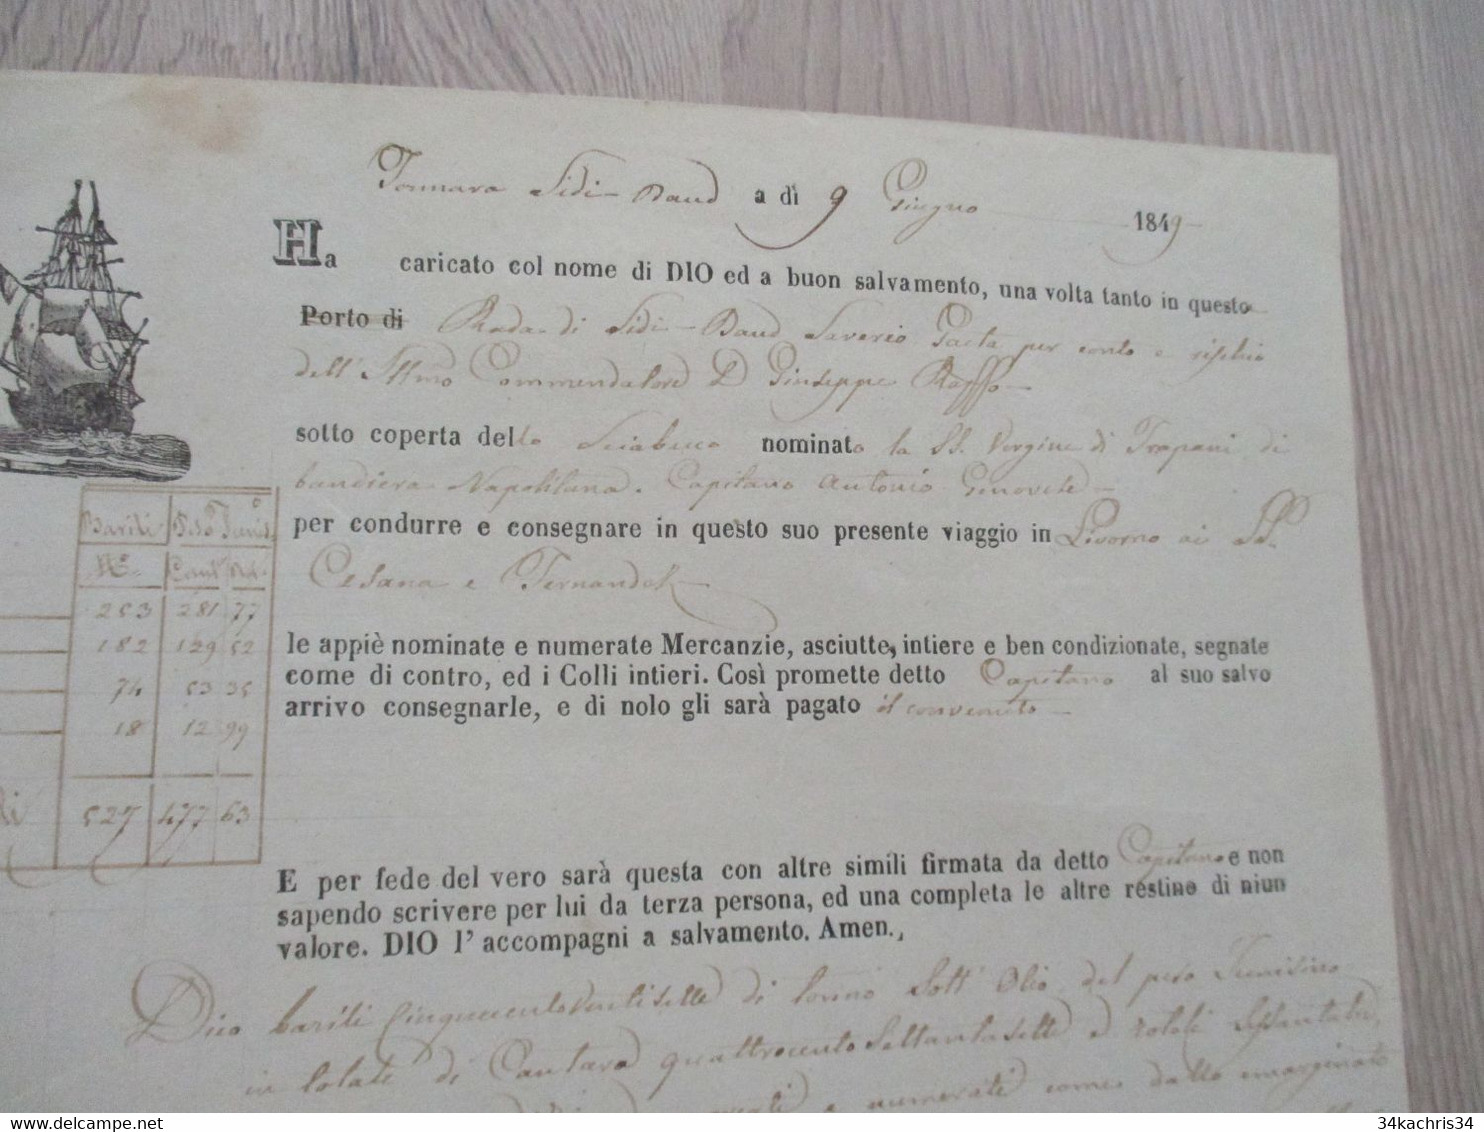 Tonnara Sidi-Daud a dì 9 Giugno 1849
Ha caricato col nome di DIO ed a buon salvamento, una volta tanto in questo
Porto di Rada di Sidi-Daud Saverio Gaeta per conto e rischio
dell' Illmo Commendatore D Giuseppe Raffo
sotto coperta dello Sciabecco nominato la SS. Vergine di Trapani di
bandiera Napolitana. Capitano Antonio Genovese
per condurre e consegnare in questo suo presente viaggio in Livorno ai SS.
Cesana e Fernandez
le appiè nominate e numerate Mercanzie, asciutte, intiere e ben condizionate, segnate
come di contro, ed i Colli intieri. Così promette detto Capitano al suo salvo
arrivo consegnarle, e di nolo gli sarà pagato il convenuto
Barili Peso Tunis.
No. Cant. Rot.
253 281 77
182 129 52
74 53 35
18 12 99
527 477 63
E per fede del vero sarà questa con altre simili firmata da detto Capitano e non
sapendo scrivere per lui da terza persona, ed una completa le altre restino di niun
valore. DIO l' accompagni a salvamento. Amen.
Dico barili Cinquecentoventisette di tonno Sott' Olio del peso Tunisino
in totale di Cantara quattrocento Settantasette e rotoli Sessantatre,
e numerati come dallo marginato
34kachris34